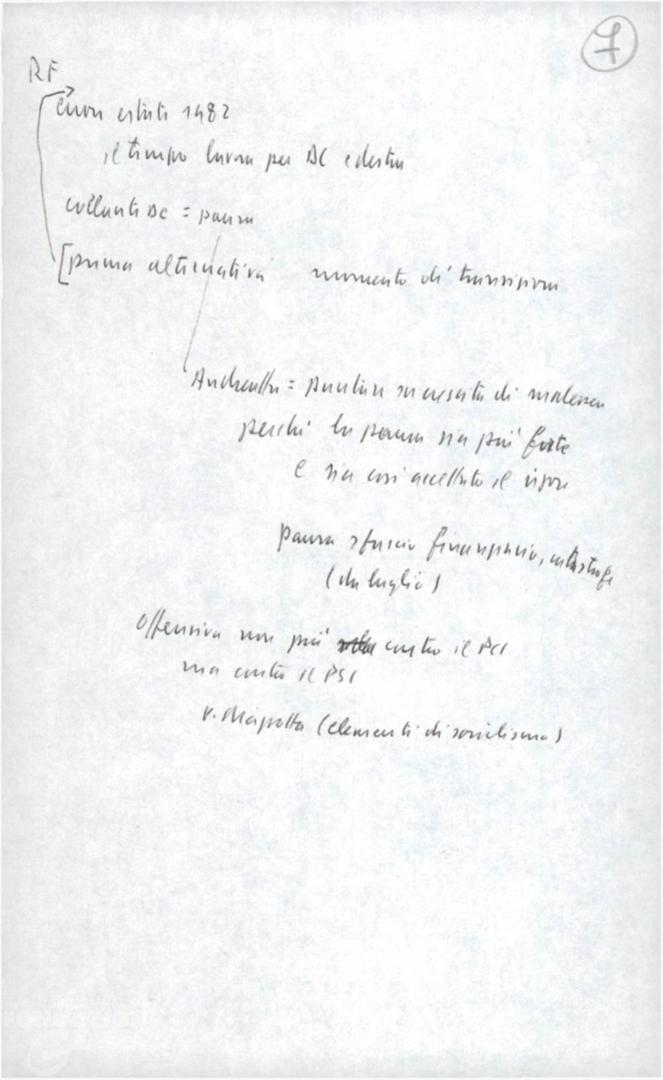 7
RF
errori estate 1982
il tempo lavora per DC e destra
collante DC = paura
[prima alternativa momento di transizione
Andreatta = puntare su crescita di malessere
perché la paura sia più forte
e sia così accettato il rigore
paura sfascio finanziario, catastrofe
(da luglio)
Offensiva non più contro il PCI
ma contro il PSI
v. (elementi di socialismo)